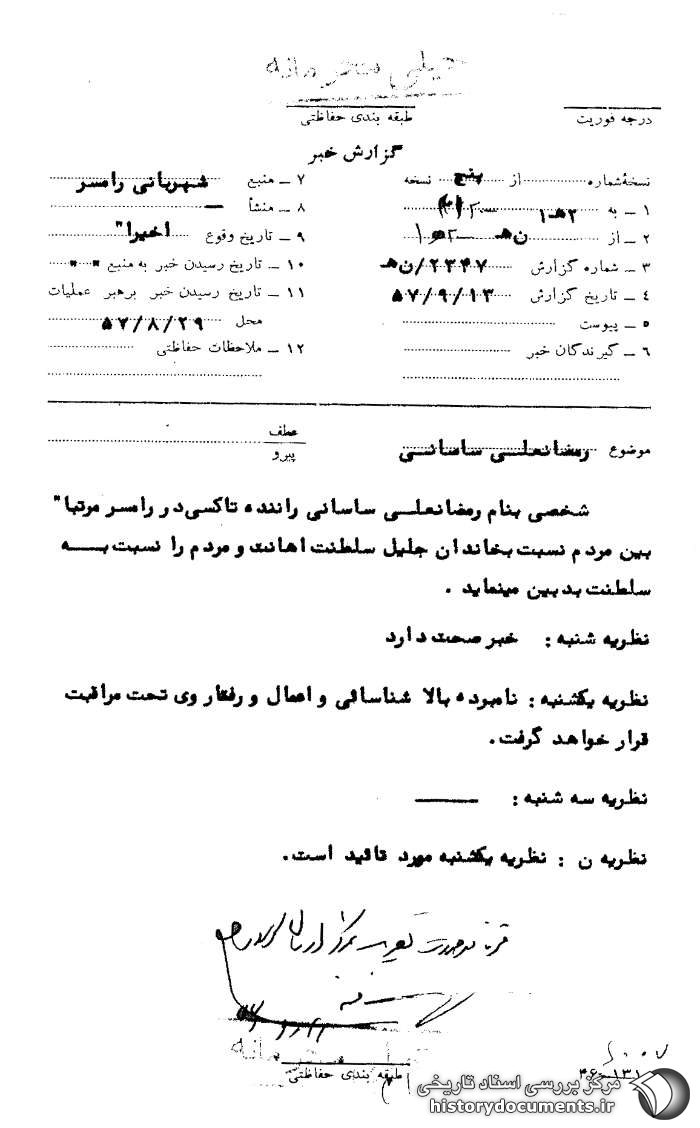 خیلی محرمانه
درجه فوریت
طبقه بندی حفاظتی
گزارش خبر
نسخهٔ شماره از پنج نسخه
۱ ـ به ۳هـ۱
۲ ـ از ن‌هـ
۳ ـ شماره گزارش ۲۳۴۷/ن‌هـ
۴ ـ تاریخ گزارش ۵۷/۹/۱۳
۵ ـ پیوست
۶ ـ گیرندگان خبر
۷ ـ منبع شهربانی رامسر
۸ ـ منشأ ـ
۹ ـ تاریخ وقوع اخیرا"
۱۰ ـ تاریخ رسیدن خبر به منبع " "
۱۱ ـ تاریخ رسیدن خبر برهبر عملیات
محل ۵۷/۸/۲۹
۱۲ ـ ملاحظات حفاظتی
موضوع رمضانعلـی ساسانـی
عطف
پیرو
شخصی بنام رمضانعلـی ساسانی راننده تاکسی‌در رامسر مرتبا"
بین مردم نسبت بخاندان جلیل سلطنت اهانت و مردم را نسبت بــه
سلطنت بدبین مینماید .
نظریه شنبه : خبر صحت دارد
نظریه یکشنبه : نامبرده بالا شناسائی و اعمال و رفتار وی تحت مراقبت
قرار خواهد گرفت.
نظریه سه شنبه : ــــــ
نظریه ن : نظریه یکشنبه مورد تائید است.
محرمانه
طبقه بندی حفاظتی
مرکز بررسی اسناد تاریخی
historydocuments.ir